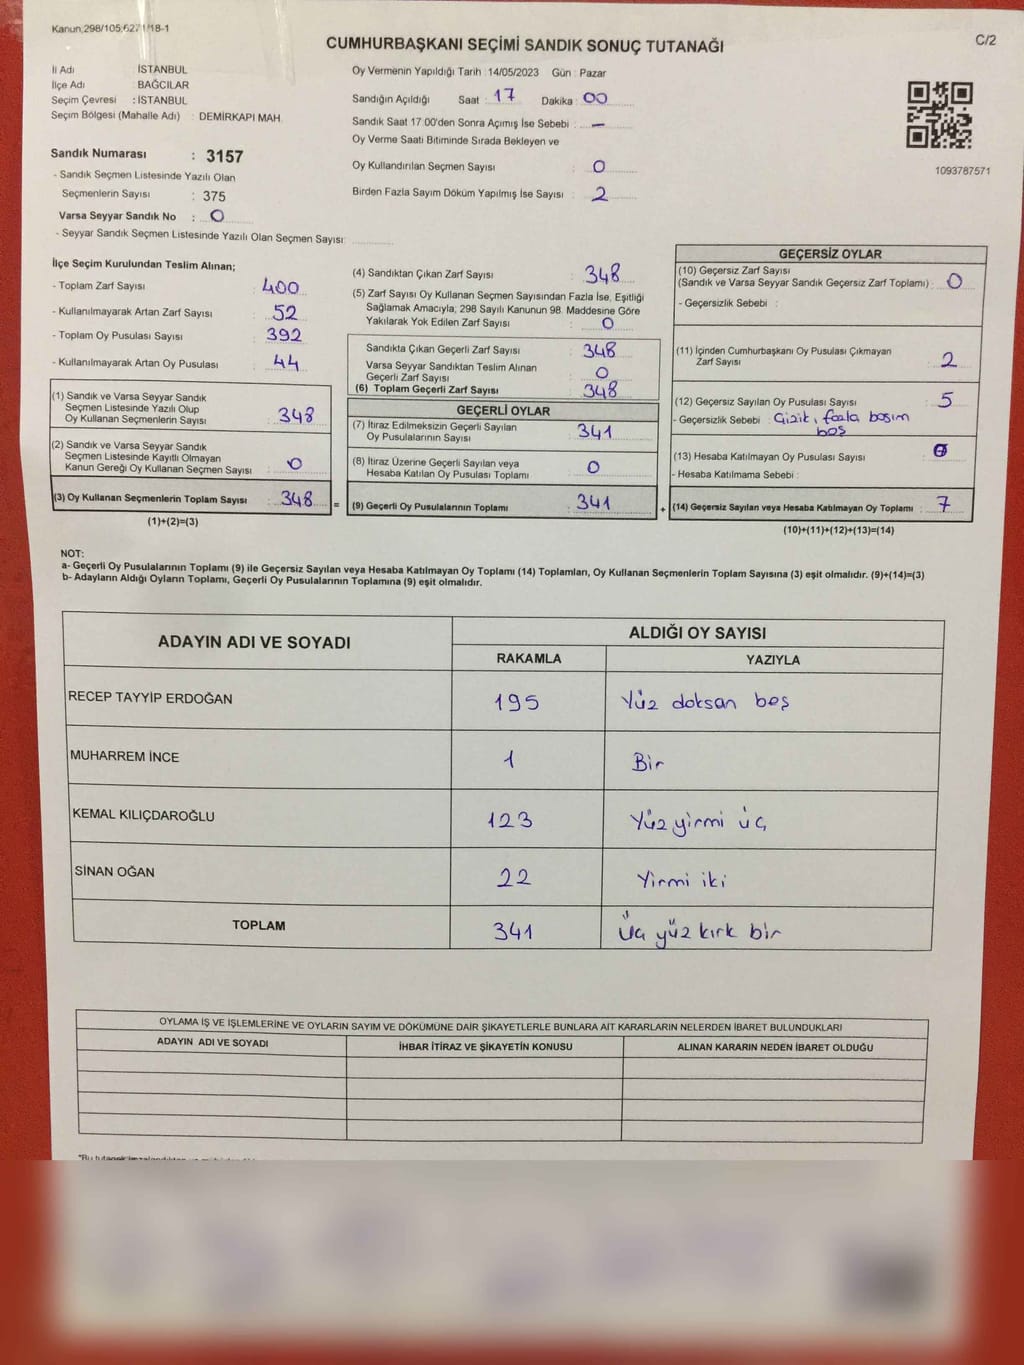 Kanun,298/105;627/18-1
C/2
CUMHURBAŞKANI SEÇİMİ SANDIK SONUÇ TUTANAĞI
İl Adı : İSTANBUL
İlçe Adı : BAĞCILAR
Seçim Çevresi : İSTANBUL
Seçim Bölgesi (Mahalle Adı) : DEMİRKAPI MAH.
Sandık Numarası : 3157
- Sandık Seçmen Listesinde Yazılı Olan
Seçmenlerin Sayısı : 375
Varsa Seyyar Sandık No : 0
- Seyyar Sandık Seçmen Listesinde Yazılı Olan Seçmen Sayısı:
Oy Vermenin Yapıldığı Tarih : 14/05/2023 Gün : Pazar
Sandığın Açıldığı Saat : 17 Dakika : 00
Sandık Saat 17.00'den Sonra Açımış İse Sebebi : —
Oy Verme Saati Bitiminde Sırada Bekleyen ve
Oy Kullandırılan Seçmen Sayısı : 0
Birden Fazla Sayım Döküm Yapılmış İse Sayısı : 2
1093787571
İlçe Seçim Kurulundan Teslim Alınan;
- Toplam Zarf Sayısı : 400
- Kullanılmayarak Artan Zarf Sayısı : 52
- Toplam Oy Pusulası Sayısı : 392
- Kullanılmayarak Artan Oy Pusulası : 44
(1) Sandık ve Varsa Seyyar Sandık
Seçmen Listesinde Yazılı Olup
Oy Kullanan Seçmenlerin Sayısı : 348
(2) Sandık ve Varsa Seyyar Sandık
Seçmen Listesinde Kayıtlı Olmayan
Kanun Gereği Oy Kullanan Seçmen Sayısı : 0
(3) Oy Kullanan Seçmenlerin Toplam Sayısı : 348 =
(1)+(2)=(3)
(4) Sandıktan Çıkan Zarf Sayısı : 348
(5) Zarf Sayısı Oy Kullanan Seçmen Sayısından Fazla İse, Eşitliği
Sağlamak Amacıyla; 298 Sayılı Kanunun 98. Maddesine Göre
Yakılarak Yok Edilen Zarf Sayısı : 0
Sandıkta Çıkan Geçerli Zarf Sayısı : 348
Varsa Seyyar Sandıktan Teslim Alınan
Geçerli Zarf Sayısı : 0
(6) Toplam Geçerli Zarf Sayısı : 348
GEÇERLİ OYLAR
(7) İtiraz Edilmeksizin Geçerli Sayılan
Oy Pusulalarının Sayısı : 341
(8) İtiraz Üzerine Geçerli Sayılan veya
Hesaba Katılan Oy Pusulası Toplamı : 0
(9) Geçerli Oy Pusulalarının Toplamı : 341 +
GEÇERSİZ OYLAR
(10) Geçersiz Zarf Sayısı
(Sandık ve Varsa Seyyar Sandık Geçersiz Zarf Toplamı) : 0
- Geçersizlik Sebebi :
(11) İçinden Cumhurbaşkanı Oy Pusulası Çıkmayan
Zarf Sayısı : 2
(12) Geçersiz Sayılan Oy Pusulası Sayısı : 5
- Geçersizlik Sebebi : Çizik, fazla basım
boş
(13) Hesaba Katılmayan Oy Pusulası Sayısı : 0
- Hesaba Katılmama Sebebi :
(14) Geçersiz Sayılan veya Hesaba Katılmayan Oy Toplamı : 7
(10)+(11)+(12)+(13)=(14)
NOT:
a- Geçerli Oy Pusulalarının Toplamı (9) ile Geçersiz Sayılan veya Hesaba Katılmayan Oy Toplamı (14) Toplamları, Oy Kullanan Seçmenlerin Toplam Sayısına (3) eşit olmalıdır. (9)+(14)=(3)
b- Adayların Aldığı Oyların Toplamı, Geçerli Oy Pusulalarının Toplamına (9) eşit olmalıdır.
ADAYIN ADI VE SOYADI
ALDIĞI OY SAYISI
RAKAMLA YAZIYLA
RECEP TAYYİP ERDOĞAN 195 Yüz doksan beş
MUHARREM İNCE 1 Bir
KEMAL KILIÇDAROĞLU 123 Yüz yirmi üç
SİNAN OĞAN 22 Yirmi iki
TOPLAM 341 Üç yüz kırk bir
OYLAMA İŞ VE İŞLEMLERİNE VE OYLARIN SAYIM VE DÖKÜMÜNE DAİR ŞİKAYETLERLE BUNLARA AİT KARARLARIN NELERDEN İBARET BULUNDUKLARI
ADAYIN ADI VE SOYADI İHBAR İTİRAZ VE ŞİKAYETİN KONUSU ALINAN KARARIN NEDEN İBARET OLDUĞU